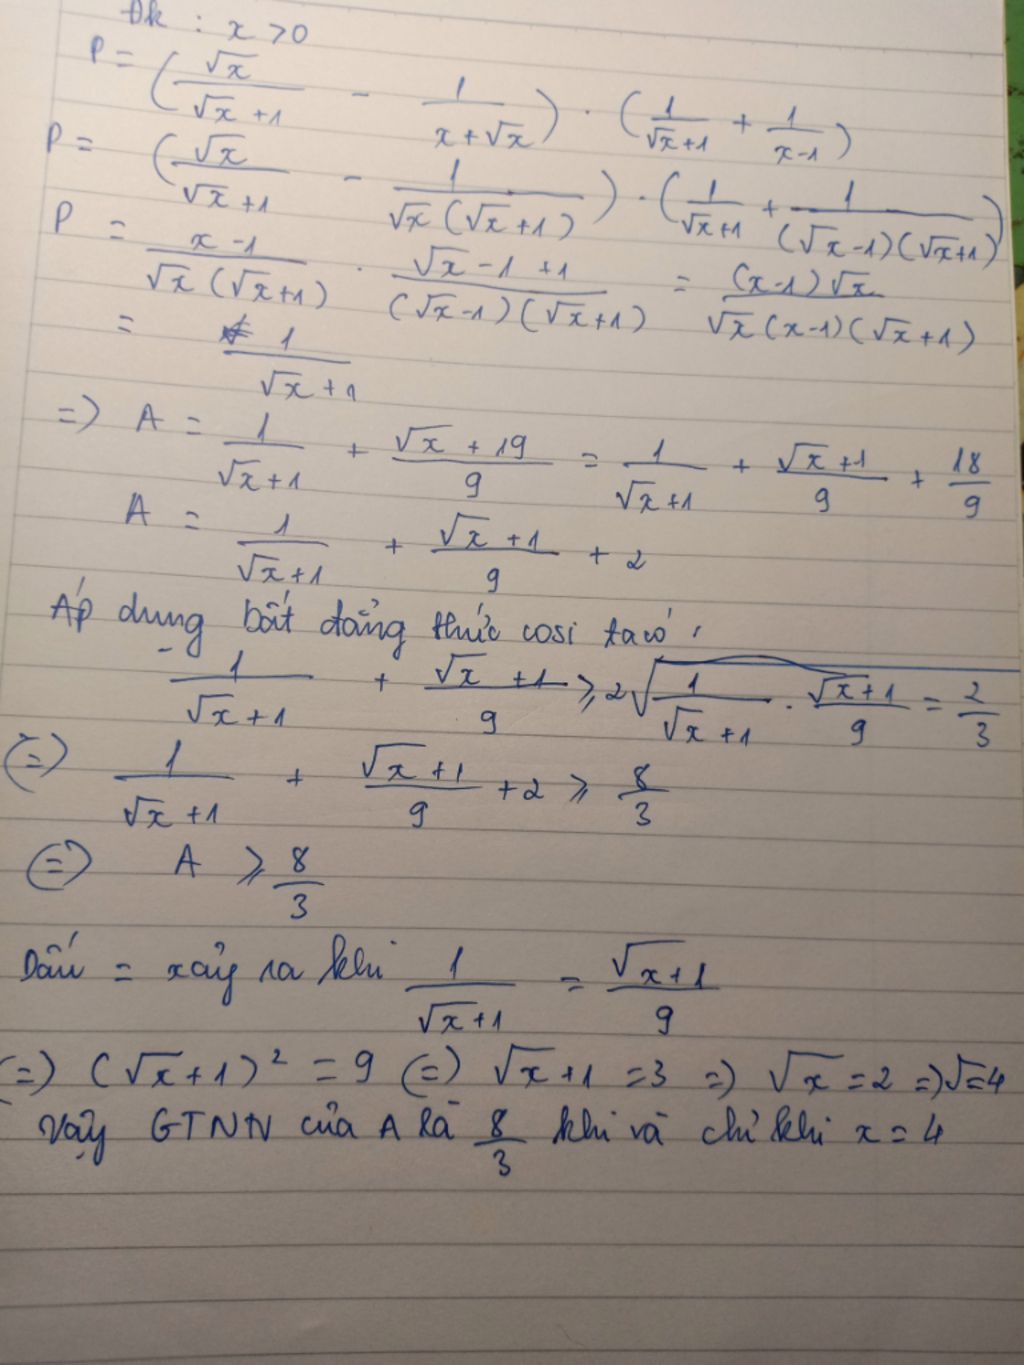 Đk : x > 0
P = (√x/(√x+1) - 1/(x+√x)) · (1/(√x+1) + 1/(x-1))
P = (√x/(√x+1) - 1/(√x(√x+1))) · (1/(√x+1) + 1/((√x-1)(√x+1)))
P = (x-1)/(√x(√x+1)) · (√x-1+1)/((√x-1)(√x+1)) = ((x-1)√x)/(√x(x-1)(√x+1))
= 1/(√x+1)
=> A = 1/(√x+1) + (√x+19)/9 = 1/(√x+1) + (√x+1)/9 + 18/9
A = 1/(√x+1) + (√x+1)/9 + 2
Áp dụng bất đẳng thức cosi ta có:
1/(√x+1) + (√x+1)/9 ≥ 2√(1/(√x+1) · (√x+1)/9) = 2/3
(=) 1/(√x+1) + (√x+1)/9 + 2 ≥ 8/3
(=) A ≥ 8/3
Dấu = xảy ra khi 1/(√x+1) = (√x+1)/9
(=) (√x+1)² = 9 (=) √x+1 = 3 => √x = 2 => √=4
Vậy GTNN của A là 8/3 khi và chỉ khi x = 4